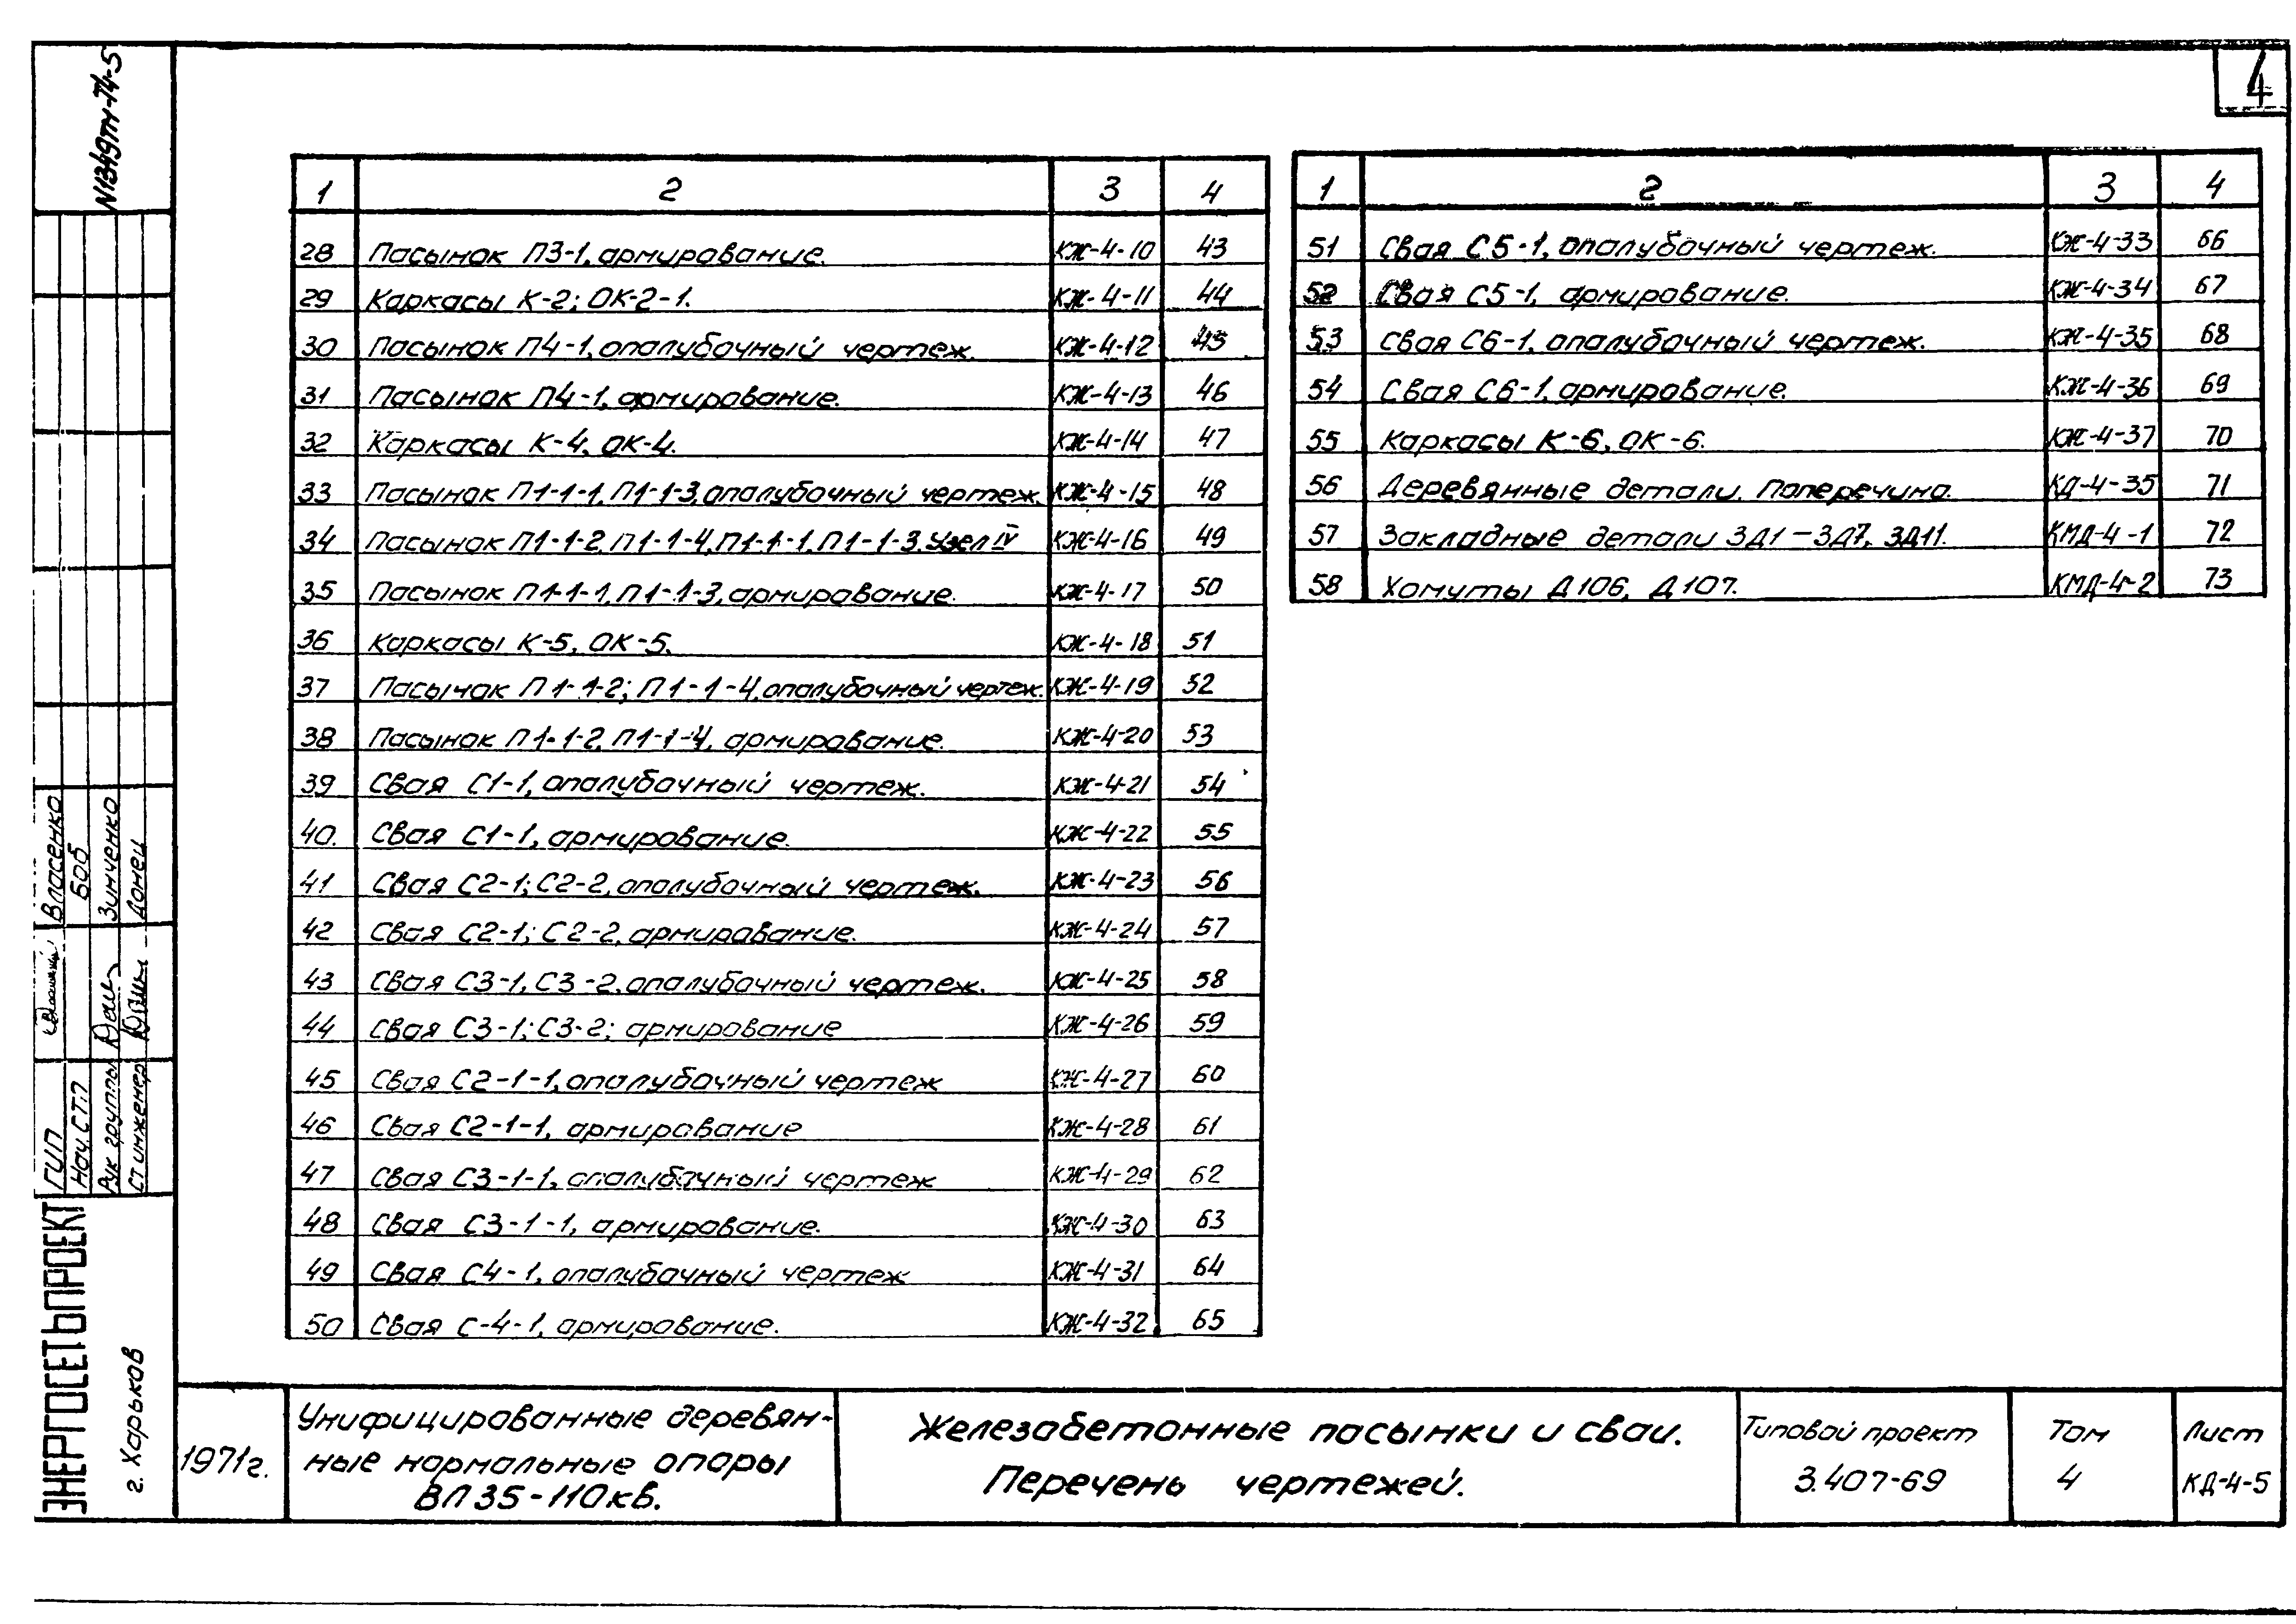 4
N1349тм-74-5
1 2 3 4
28 Пасынок П3-1, армирование. КЖ-4-10 43
29 Каркасы К-2; ОК-2-1. КЖ-4-11 44
30 Пасынок П4-1, опалубочный чертеж. КЖ-4-12 45
31 Пасынок П4-1, армирование. КЖ-4-13 46
32 Каркасы К-4, ОК-4. КЖ-4-14 47
33 Пасынок П1-1-1, П1-1-3, опалубочный чертеж. КЖ-4-15 48
34 Пасынок П1-1-2, П1-1-4, П1-1-1, П1-1-3. Узел IV КЖ-4-16 49
35 Пасынок П1-1-1, П1-1-3, армирование. КЖ-4-17 50
36 Каркасы К-5, ОК-5. КЖ-4-18 51
37 Пасынок П1-1-2; П1-1-4, опалубочный чертеж. КЖ-4-19 52
38 Пасынок П1-1-2, П1-1-4, армирование. КЖ-4-20 53
39 Свая С1-1, опалубочный чертеж. КЖ-4-21 54
40. Свая С1-1, армирование. КЖ-4-22 55
41 Свая С2-1; С2-2, опалубочный чертеж. КЖ-4-23 56
42 Свая С2-1; С2-2, армирование. КЖ-4-24 57
43 Свая С3-1, С3-2, опалубочный чертеж. КЖ-4-25 58
44 Свая С3-1; С3-2; армирование КЖ-4-26 59
45 Свая С2-1-1, опалубочный чертеж КЖ-4-27 60
46 Свая С2-1-1, армирование КЖ-4-28 61
47 Свая С3-1-1, опалубочный чертеж КЖ-4-29 62
48 Свая С3-1-1, армирование. КЖ-4-30 63
49 Свая С4-1, опалубочный чертеж КЖ-4-31 64
50 Свая С-4-1, армирование. КЖ-4-32 65
1 2 3 4
51 Свая С5-1, опалубочный чертеж. КЖ-4-33 66
52 Свая С5-1, армирование. КЖ-4-34 67
53 Свая С6-1, опалубочный чертеж. КЖ-4-35 68
54 Свая С6-1, армирование. КЖ-4-36 69
55 Каркасы К-6, ОК-6. КЖ-4-37 70
56 Деревянные детали. Поперечина. КД-4-35 71
57 Закладные детали ЗД1-ЗД7, ЗД11. КМД-4-1 72
58 Хомуты Д106, Д107. КМД-4-2 73
ГИП Власенко
Нач. СТП Боб
Рук группы Зинченко
Ст инженер Донец
ЭНЕРГОСЕТЬПРОЕКТ
г. Харьков
1971г.
Унифицированные деревян-
ные нормальные опоры
ВЛ 35-110кв.
Железобетонные пасынки и сваи.
Перечень чертежей.
Типовой проект
3.407-69
Том
4
Лист
КД-4-5